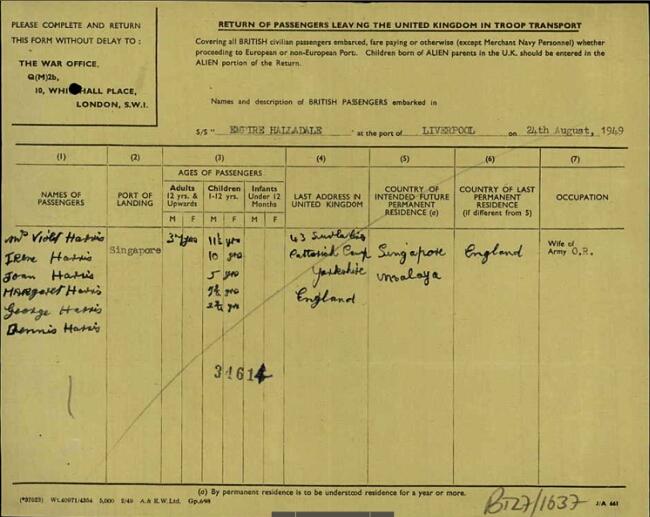 PLEASE COMPLETE AND RETURN
THIS FORM WITHOUT DELAY TO :
THE WAR OFFICE,
Q(M)2b,
10, WHI HALL PLACE,
LONDON, S.W.I.
RETURN OF PASSENGERS LEAV NG THE UNITED KINGDOM IN TROOP TRANSPORT
Covering all BRITISH civilian passengers embarked, fare paying or otherwise (except Merchant Navy Personnel) whether
proceeding to European or non-European Port. Children born of ALIEN parents in the U.K. should be entered in the
ALIEN portion of the Return.
Names and description of BRITISH PASSENGERS embarked in
S/S " EMPIRE HALLADALE " at the port of LIVERPOOL on 24th August, 1949
(1) (2) (3) (4) (5) (6) (7)
NAMES OF PASSENGERS
PORT OF LANDING
AGES OF PASSENGERS
Adults 12 yrs. & Upwards
Children 1-12 yrs.
Infants Under 12 Months
M F M F M F
LAST ADDRESS IN UNITED KINGDOM
COUNTRY OF INTENDED FUTURE PERMANENT RESIDENCE (a)
COUNTRY OF LAST PERMANENT RESIDENCE (if different from 5)
OCCUPATION
Mrs Violet Harris 11½ yrs 43
Irene Harris Singapore 10 yrs Camp Singapore England Wife of Army O.R.
Joan Harris 5 yrs Yorkshire Malaya
Margaret Harris yrs England
George Harris yrs
Dennis Harris
34614
(a) By permanent residence is to be understood residence for a year or more.
(*37023) Wt.40971/4354 5,000 2/49 A.& E.W.Ltd. Gp.698
BT27/1637
J/A 661